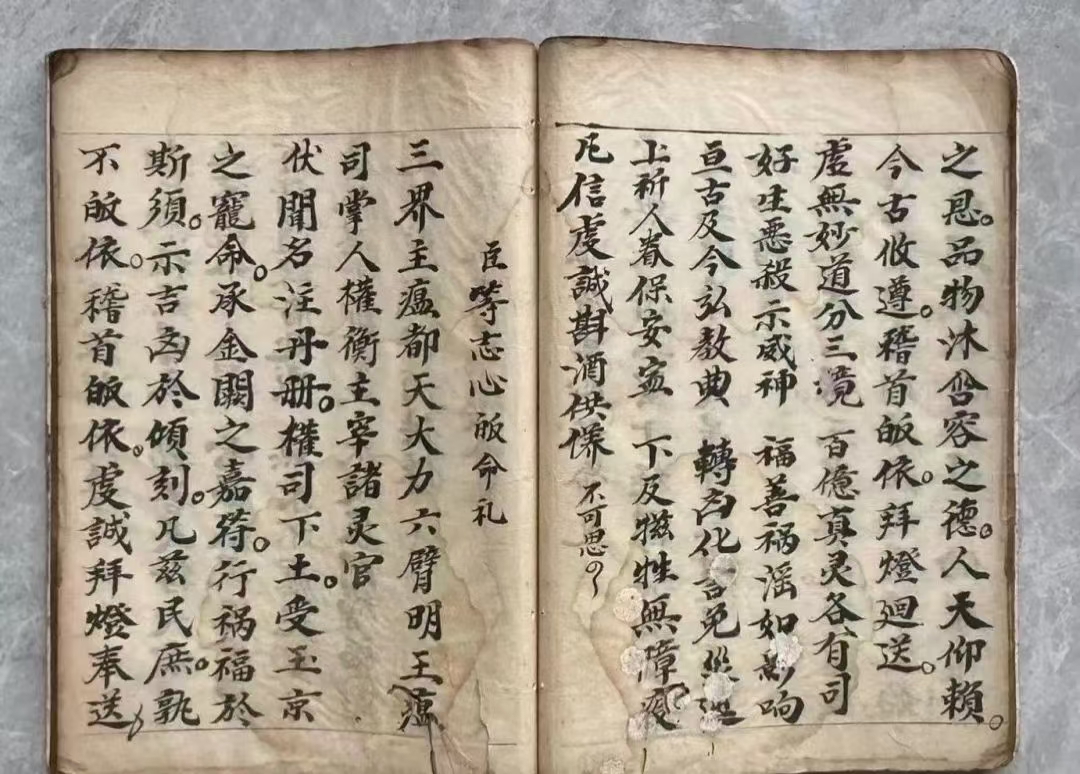 之恩。品物沐含容之德。人天仰賴。
今古攸遵。稽首皈依。拜燈廻送。
虛無妙道分三境 百億真灵各有司
好生惡殺示威神 福善祸淫如影响
亘古及今弘教典 轉凶化吉免
上祈人眷保安寍 下及牲無障
凡信虔誠斟酒供 不可思
臣等志心皈命礼
三界主瘟都天大力六臂明王瘟
司掌人權衡主宰諸灵官
伏聞名注丹册。權司下土。受玉京
之寵命。承金闕之嘉苻。行祸福於
斯須。示吉凶於傾刻。凡兹民庶。孰
不皈依。稽首皈依。虔誠拜燈奉送